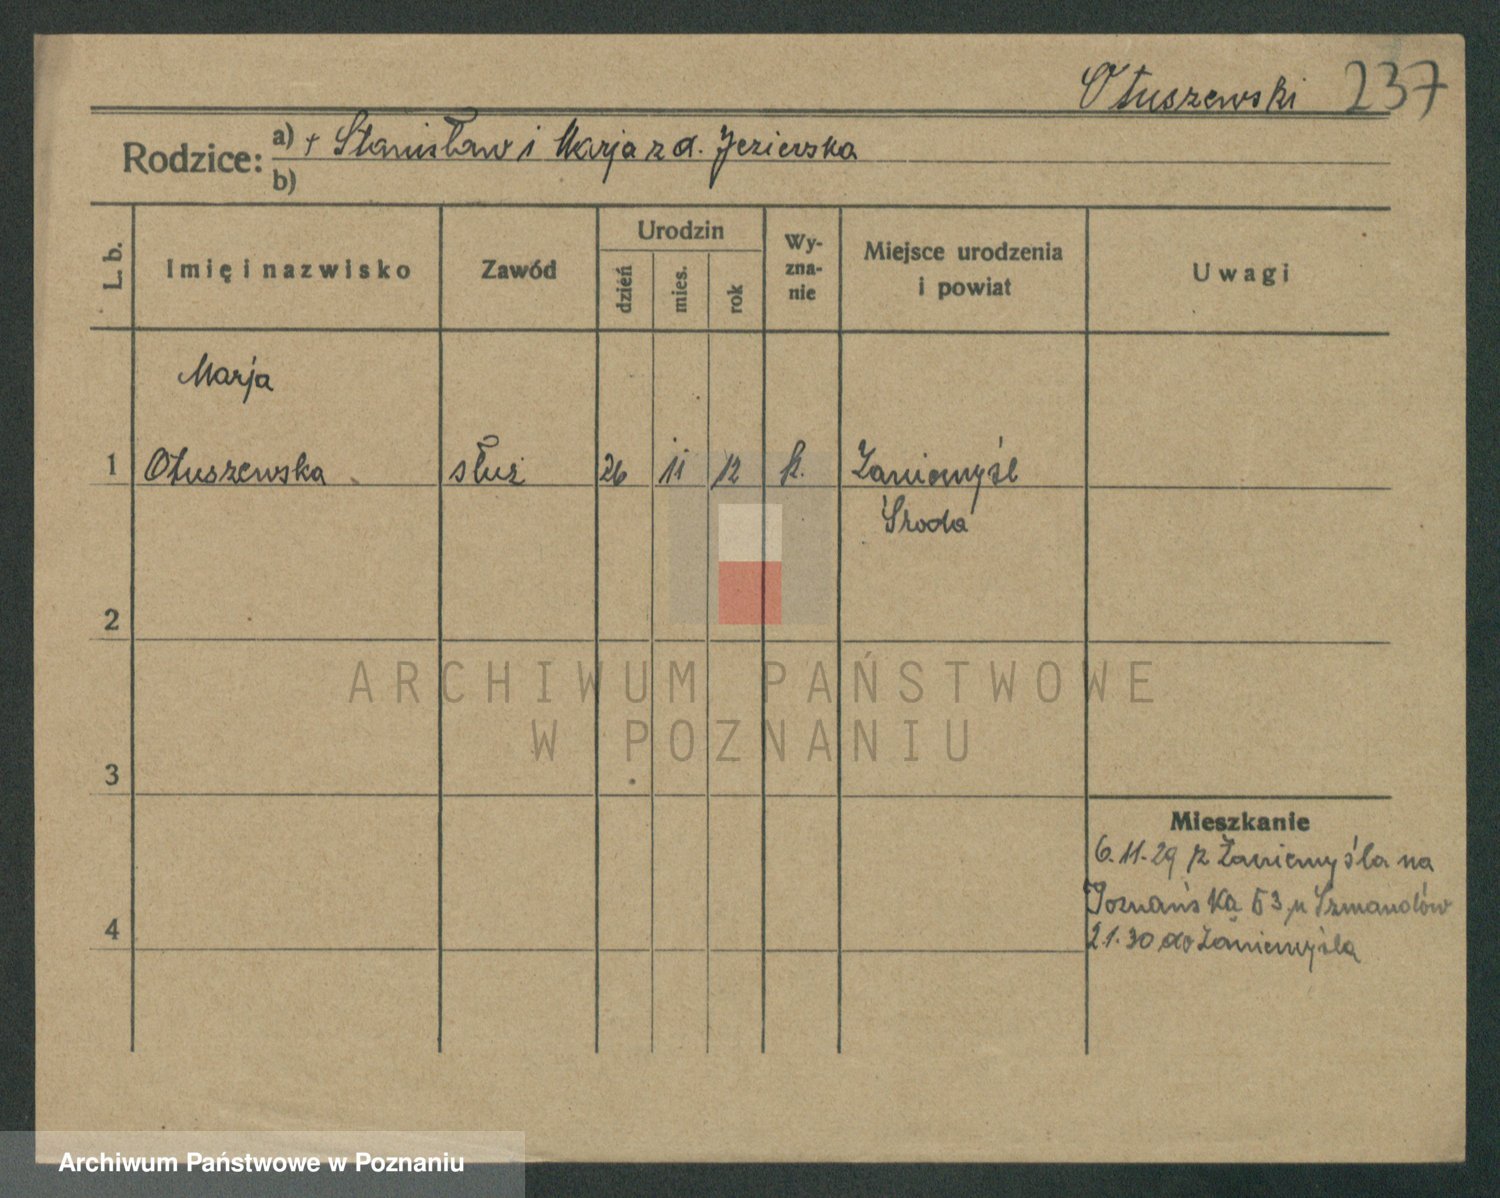 Otuszewski 237
Rodzice: a) + Stanisław i Marja z d. Jezierska
b)
L. b. Imię i nazwisko Zawód Urodzin dzień mies. rok Wyzna-nie Miejsce urodzenia i powiat Uwagi
Marja
1 Otuszewska służ 26 11 12 k. Zaniemyśl
Środa
2
3
Mieszkanie
6.11.29 z Zaniemyśla na
Poznańska 53 u Szmandów
4
2.1.30 do Zaniemyśla
ARCHIWUM PAŃSTWOWE
W POZNANIU
Archiwum Państwowe w Poznaniu